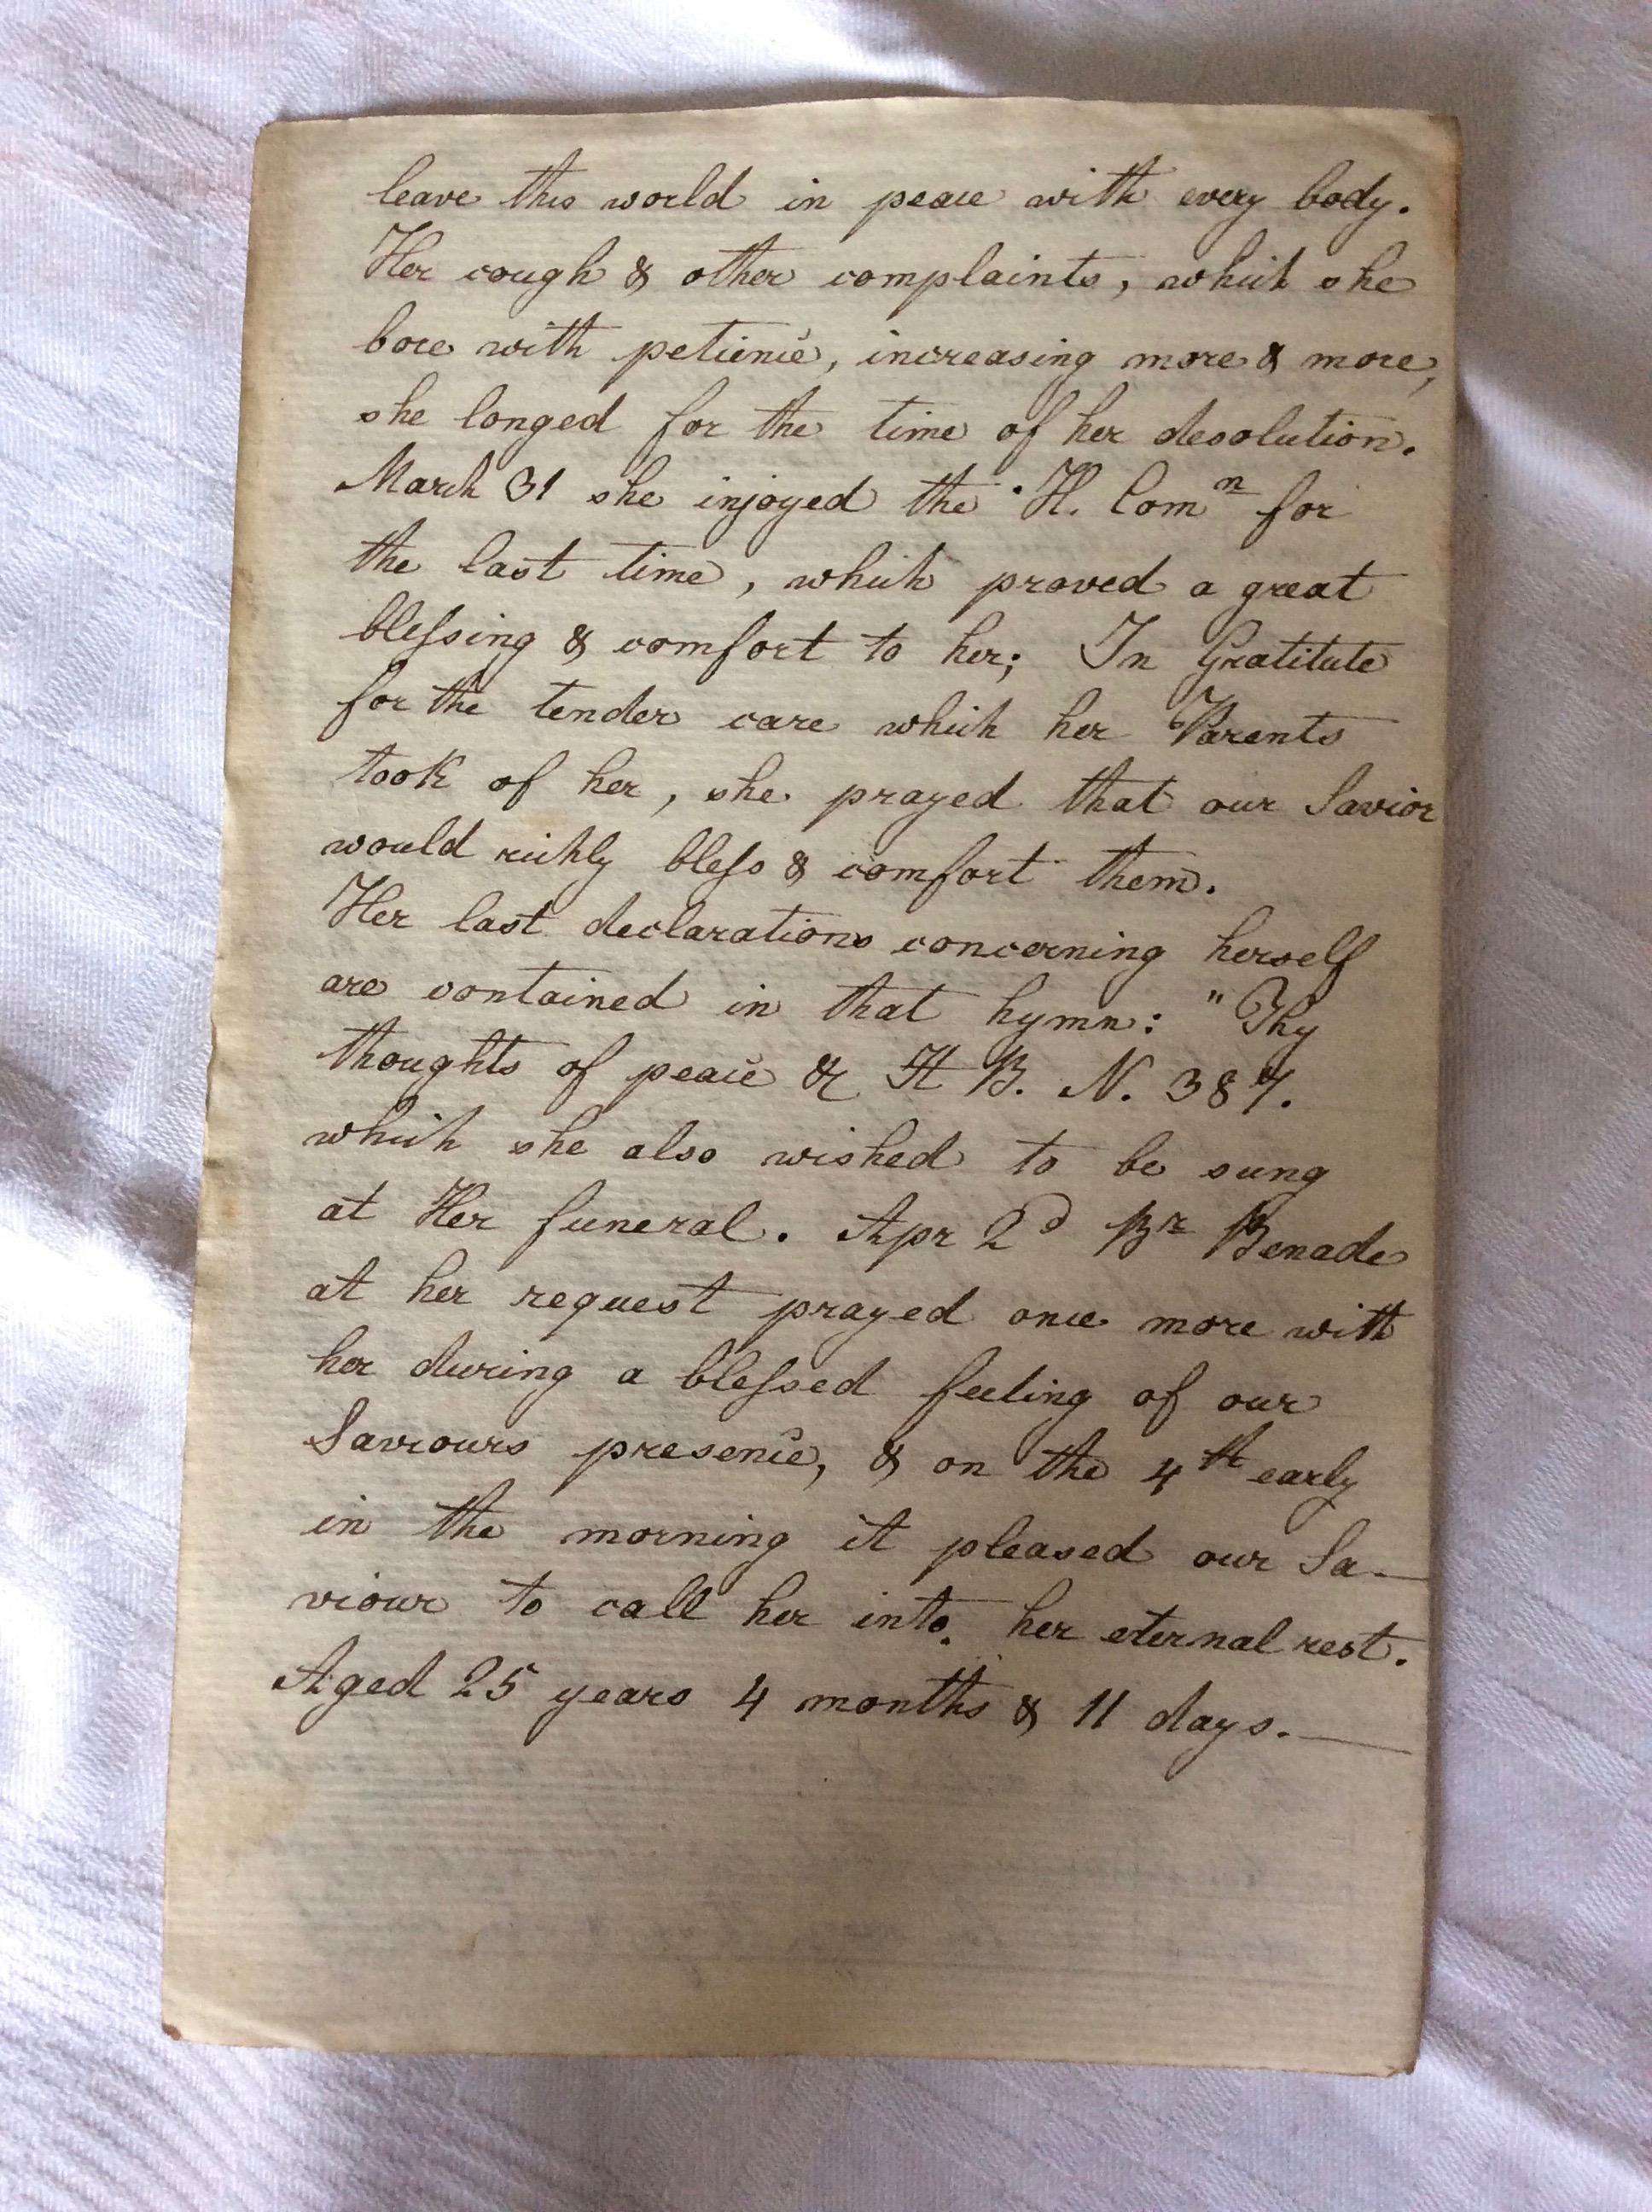 leave this world in peace with every body.
Her cough & other complaints, which she
bore with petience, increasing more & more,
she longed for the time of her desolution.
March 31 she injoyed the H. Comⁿ for
the last time, which proved a great
blessing & comfort to her; In Gratitute
for the tender care which her Parents
took of her, she prayed that our Savior
would richly bless & comfort them.
Her last declarations concerning herself
are contained in that hymn: "Thy
thoughts of peace & H B. N. 387.
which she also wished to be sung
at Her funeral. Apr 2d Br Benade
at her request prayed once more with
her during a blessed feeling of our
Saviours presence, & on the 4th early
in the morning it pleased our Sa-
viour to call her into her eternal rest.
Aged 25 years 4 months & 11 days.—